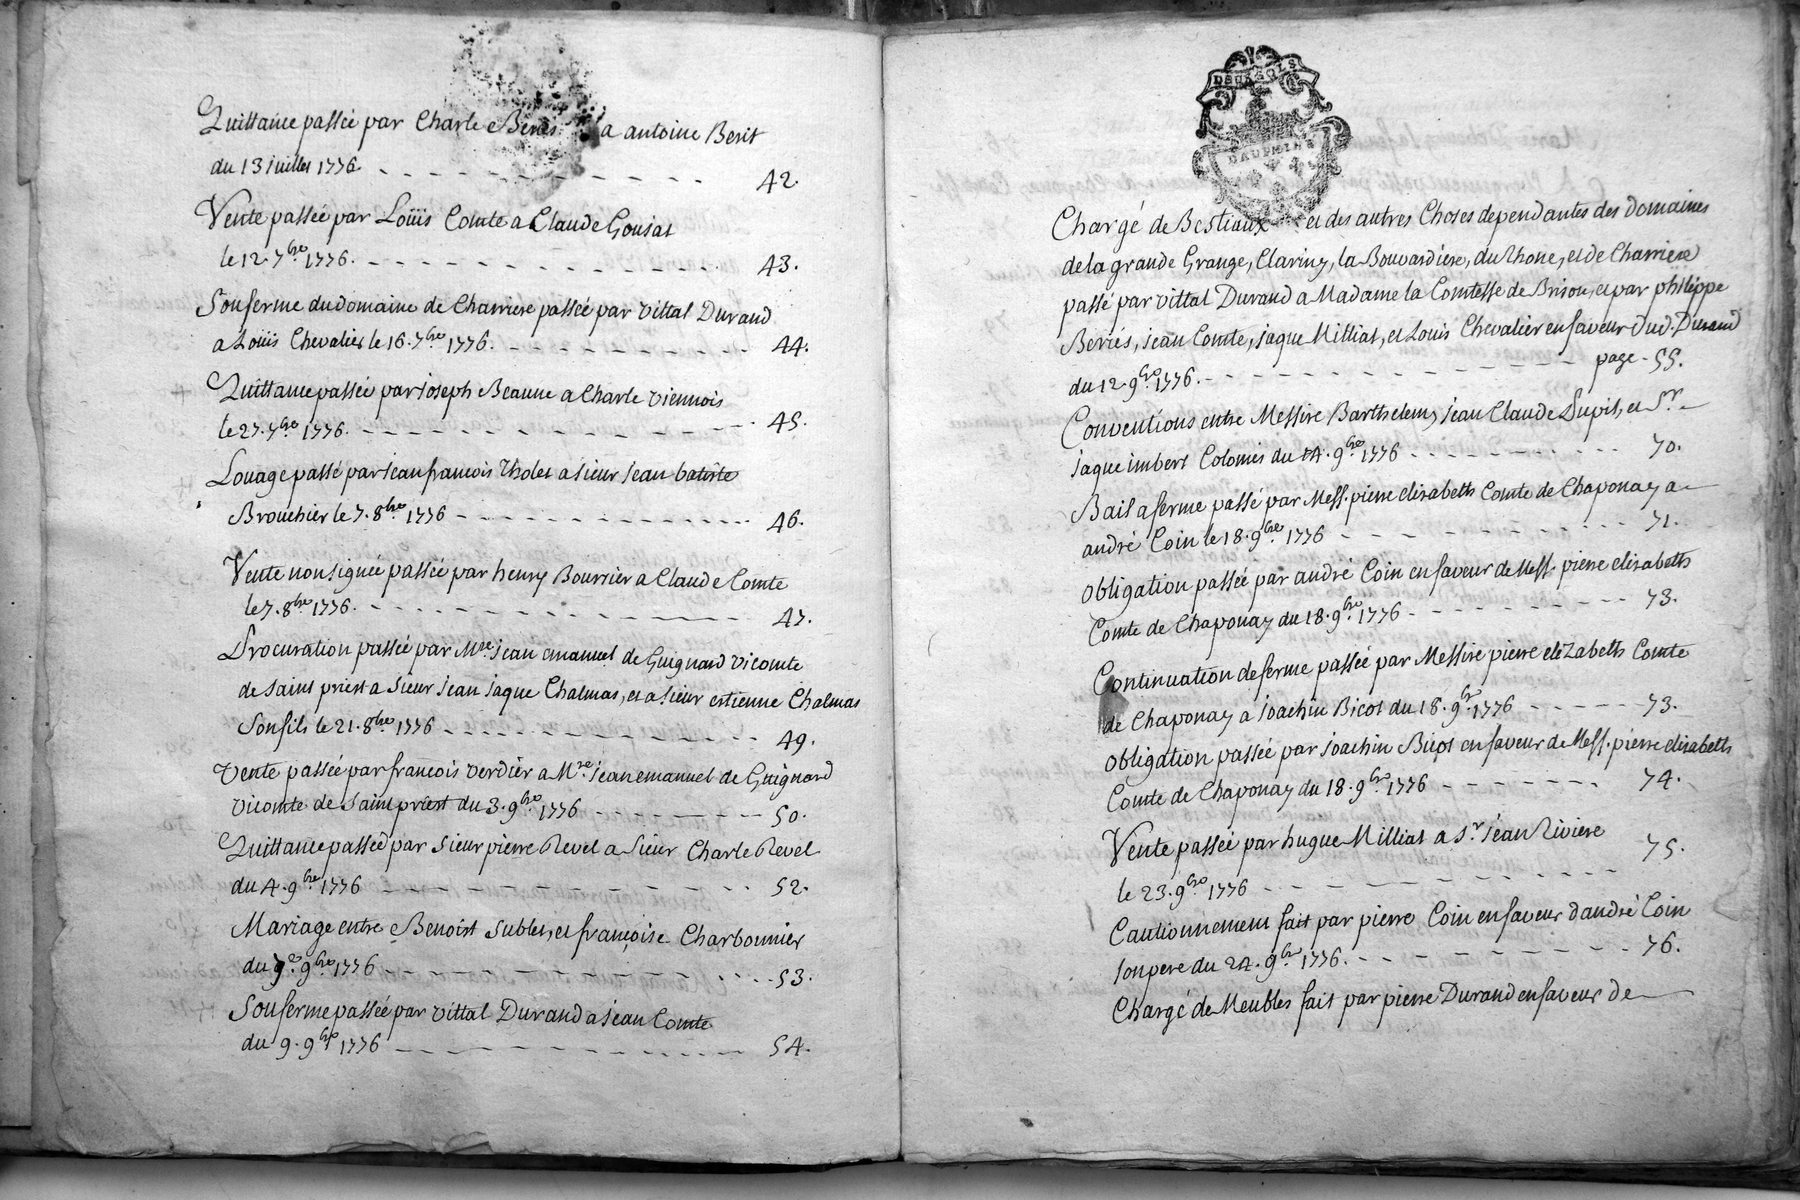 Quittance passée par Charle Beriés a antoine Berit
du 13 juillet 1776 42.
Vente passée par Loüis Comte a Claude Gonsat
le 12. 7bre 1776. 43.
Souferme du domaine de Charriere passée par vittal Durand
a Loüis Chevalier le 16. 7bre 1776. 44.
Quittance passée par joseph Beaune a Charle viennois
le 27. 7bre 1776. 45.
Louage passé par jean francois Tholet a sieur jean batiste
Brouchier le 7. 8bre 1776 46.
Vente non signée passée par henry Bourrier a Claude Comte
le 7. 8bre 1776. 47.
Procuration passée par Mre jean emanuel de Guignard vicomte
de saint priest a sieur jean jaque Chalmas, et a sieur estienne Chalmas
son fils le 21. 8bre 1776 49.
Vente passée par francois verdier a Mre jean emanuel de Guignard
vicomte de saint priest du 3. 9bre 1776 50.
Quittance passée par sieur pierre Revel a sieur Charle Revel
du 4. 9bre 1776 52.
Mariage entre Benoist sublet, et françoise Charbonnier
du 9bre 1776 53.
Souferme passée par vittal Durand a jean Comte
du 9. 9bre 1776 54.
DEUX SOLS
DAUPHINE
Chargé de Bestiaux et des autres Choses dependantes des domaines
de la grande Grange, Clariny, la Bouvardiere, du Thone, et de Charriere
passé par vittal Durand a Madame la Comtesse de Brison, et par philippe
Beriés, jean Comte, jaque Milliat, et Louis Chevalier en faveur dud. Durand
du 12. 9bre 1776. page. 55.
Conventions entre Messire Barthelemy jean Claude Pupil, et Sr
jaque imbert Colomés du 14. 9bre 1776 70.
Bail a ferme passé par Mess. pierre elisabeth Comte de Chaponay a
andré Coin le 18. 9bre 1776 71.
obligation passée par andré Coin en faveur de Mess. pierre elisabeth
Comte de Chaponay du 18. 9bre 1776 73.
Continuation de ferme passée par Messire pierre elizabeth Comte
de Chaponay a joachin Bicot du 18. 9bre 1776 73.
obligation passée par joachin Bicot en faveur de Mess. pierre elisabeth
Comte de Chaponay du 18. 9bre 1776 74.
Vente passée par hugue Milliat a Sr jean Riviere
le 23. 9bre 1776 75.
Cautionnement fait par pierre Coin en faveur d'andré Coin
son pere du 24. 9bre 1776. 76.
Chargé de Meubles fait par pierre Durand en faveur de